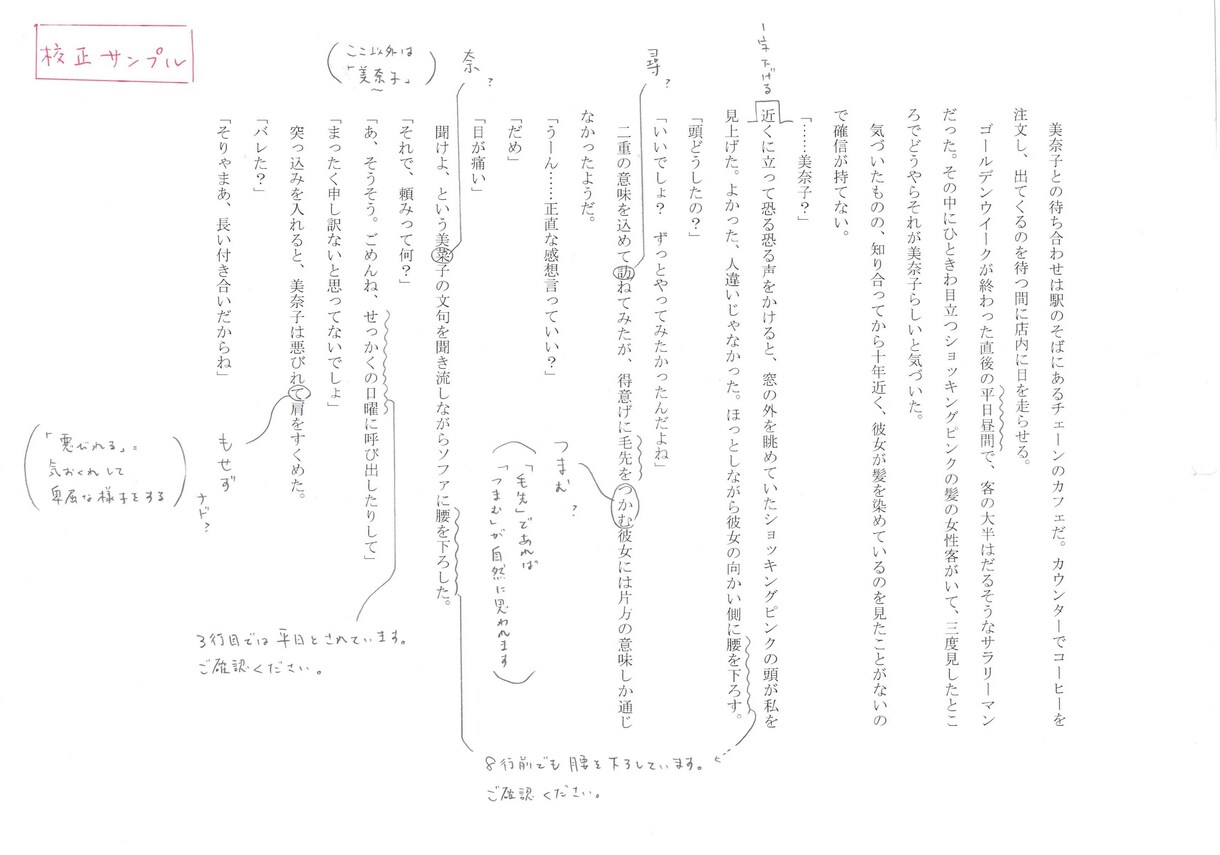 校正サンプル
美奈子との待ち合わせは駅のそばにあるチェーンのカフェだ。カウンターでコーヒーを
注文し、出てくるのを待つ間に店内に目を走らせる。
ゴールデンウイークが終わった直後の平日昼間で、客の大半はだるそうなサラリーマン
だった。その中にひときわ目立つショッキングピンクの髪の女性客がいて、三度見したとこ
ろでどうやらそれが美奈子らしいと気づいた。
気づいたものの、知り合ってから十年近く、彼女が髪を染めているのを見たことがないの
で確信が持てない。
「……美奈子？」
1字下げる
近くに立って恐る恐る声をかけると、窓の外を眺めていたショッキングピンクの頭が私を
見上げた。よかった、人違いじゃなかった。ほっとしながら彼女の向かい側に腰を下ろす。
「頭どうしたの？」
「いいでしょ？　ずっとやってみたかったんだよね」
尋?
二重の意味を込めて訪ねてみたが、得意げに毛先をつかむ彼女には片方の意味しか通じ
なかったようだ。
つまむ?
(「毛先」であれば
「つまむ」が自然に思われます)
「うーん……正直な感想言っていい？」
「だめ」
「目が痛い」
奈?
(ここ以外は
「美奈子」)
聞けよ、という美菜子の文句を聞き流しながらソファに腰を下ろした。
8行前でも腰を下ろしています。
ご確認ください。
「それで、頼みって何？」
「あ、そうそう。ごめんね、せっかくの日曜に呼び出したりして」
3行目では平日とされています。
ご確認ください。
「まったく申し訳ないと思ってないでしょ」
突っ込みを入れると、美奈子は悪びれて肩をすくめた。
もせず
ナド?
(「悪びれる」=
気おくれして
卑屈な様子をする)
「バレた？」
「そりゃまあ、長い付き合いだからね」